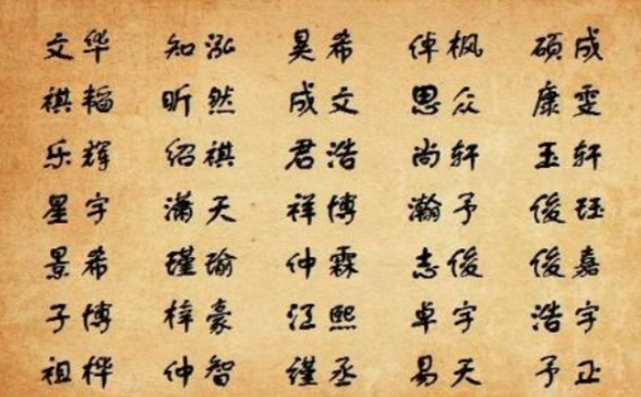 文华 知泓 昊希 倬枫 硕成
祺韬 昕然 成文 思众 康雯
乐辉 绍祺 君浩 尚轩 玉轩
星宇 潇天 祥博 瀚予 俊珏
景希 瑾瑜 仲霖 志俊 俊嘉
子博 梓豪 江熙 卓宇 浩宇
祖桦 仲智 继丞 易天 予正